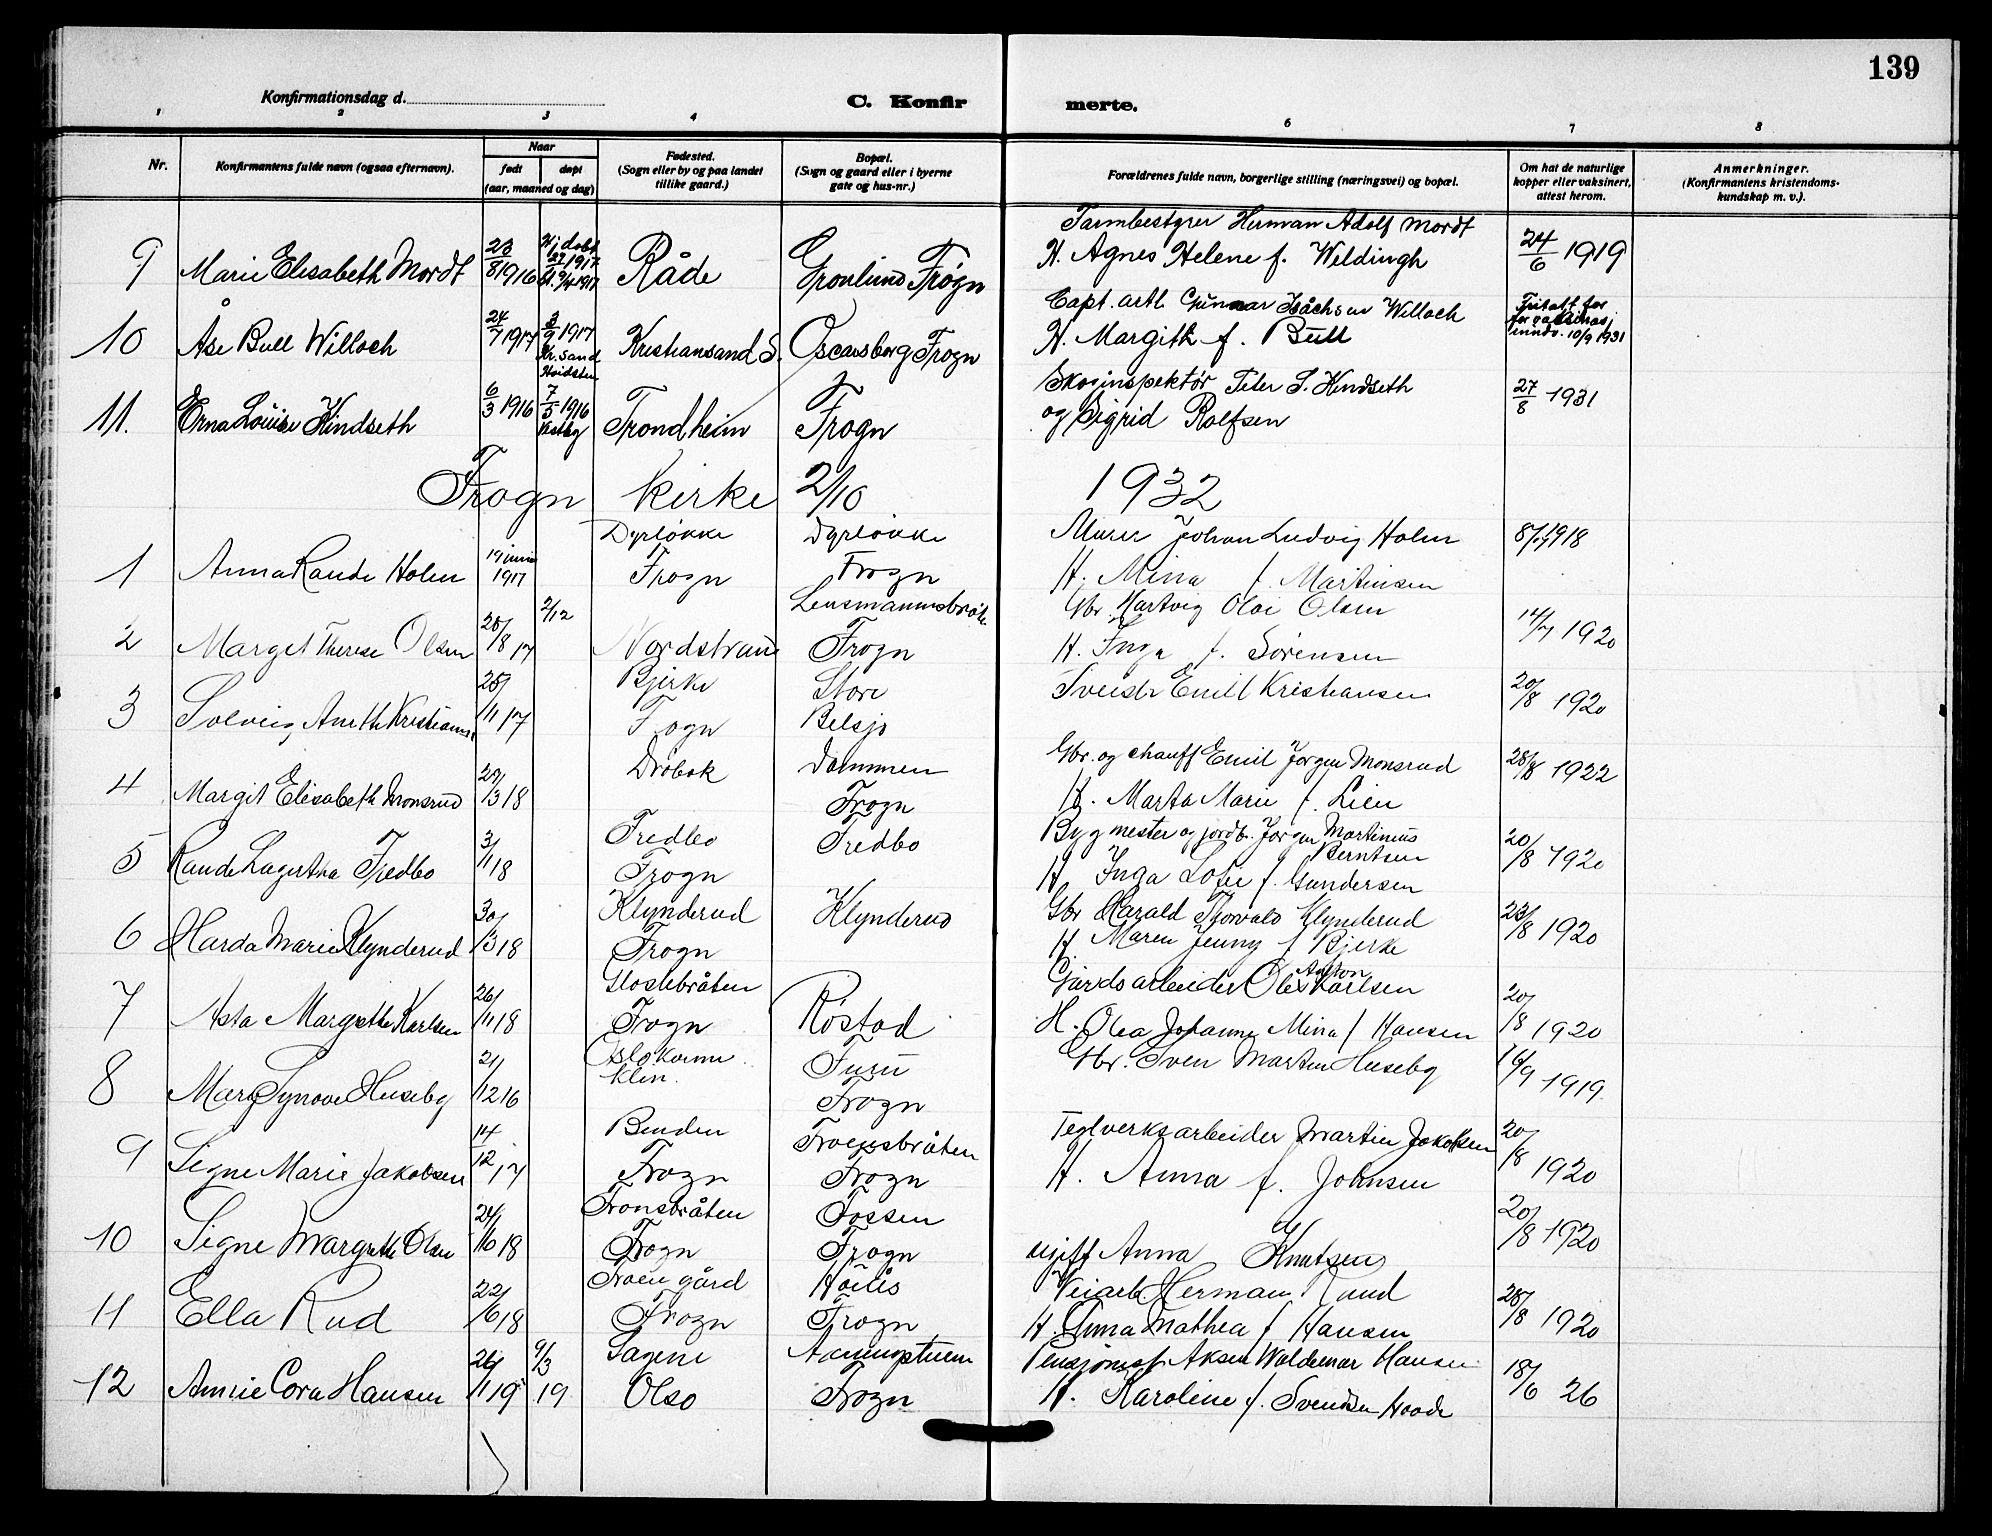 139
Konfirmationsdag d.
C. Konfir merte.
1 2 3 4 6 7 8
Nr.
Konfirmantens fulde navn (ogsaa efternavn).
Naar
født døpt
(aar, maaned og dag)
Fødested.
(Sogn eller by og paa landet
tillike gaard.)
Bopæl.
(Sogn og gaard eller i byerne
gate og hus-nr.)
Forældrenes fulde navn, borgerlige stilling (næringsvei) og bopæl.
Om hat de naturlige
kopper eller vaksinert,
attest herom.
Anmerkninger.
(Konfirmantens kristendoms-
kundskap m. v.).
Farmbestyrer Herman Adolf Mordt
9 Marie Elisabeth Mordt 23/8 1916 Hj døbt 27/ 1917 St. 9/4 1917 Råde Grønlund Frogn H. Agnes Helene f. Weldingh 24/6 1919
Capt. artl. Gunnar Isachsen Willoch
10 Åse Bull Willoch 24/7 1917 3/9 1917 Kr. Sand Kristiansand S. Oscarsborg Frogn H. Margith f. Bull 10/9 1931
Skoginspektør Peter S. Kindseth
11. Erna Louise Kindseth 6/3 1916 7/5 1916 Trondheim Frogn og Sigrid Rolfsen 27/8 1931
Frogn kirke 2/10 1932
Dyrløkke Dyrløkke Murer Johan Ludvig Holm 1918
1 Anna Rande Holm 19 juni 1917 Frogn Frogn H. Mina f. Martinsen
2/12 Lensmannsbråte Gbr. Hartvig Olai Olsen
2 Marget Therese Olsen 20/8 17 Nordstrand Frogn H. Inga f. Sørensen 14/7 1920
Bjerke Store Svend Emil Kristiansen
3 Solveig Aneth Kristianse 25/11 17 Frogn Belsjø 20/8 1920
Drøbak Dammen Gbr. og chauff Emil Jørgen Monsrud
4 Margit Elisabeth Monsrud 29/3 18 Frogn H. Marta Marie f. Lien 28/8 1922
Tredbo Tredbo Bygmester og jordb. Jørgen Martinius Berntsen
5 Rande Lagertha Tredbo 3/1 18 Frogn H Inga Lofie f. Gundersen 20/8 1920
Klynderud Klynderud Gbr Harald Thorvald Klynderud
6 Harda Marie Klynderud 30/3 18 Frogn H Maren Jenny f Bjerke 23/8 1920
Glostebråten Gårdsarbeider Ole Anton Karlsen
7 Asta Margrethe Karlsen 26/11 18 Frogn Røstad H. Olea Johanne Mina f Hansen 20/8 1920
Oslo kvinne klin. Furu Gbr. Sven Martin Huseby
8 Mary Synøve Huseby 21/12 16 Frogn 16/9 1919
Benden Froensbråten Teglverksarbeider Martin Jakobsen
9 Signe Marie Jakobsen 14/12 17 Frogn Frogn H. Anna f. Johnsen 20/8 1920
Fronsbråten Fossen
10 Signe Margrethe Olsen 24/10 18 Frogn Frogn ugift Anna Knutsen 20/8 1920
Froen gård Høilås Veiarb. Herman Rund
11 Ella Rud 22/6 18 Frogn Frogn H. Anna Mathea f Hansen 28/8 1920
9/3 Sagene Pensjonist Aksen Waldemar Hansen
12 Annie Cora Hansen 24/1 19 19 Olso Frogn H. Karoline f. Svendsen Hoode 18/6 26